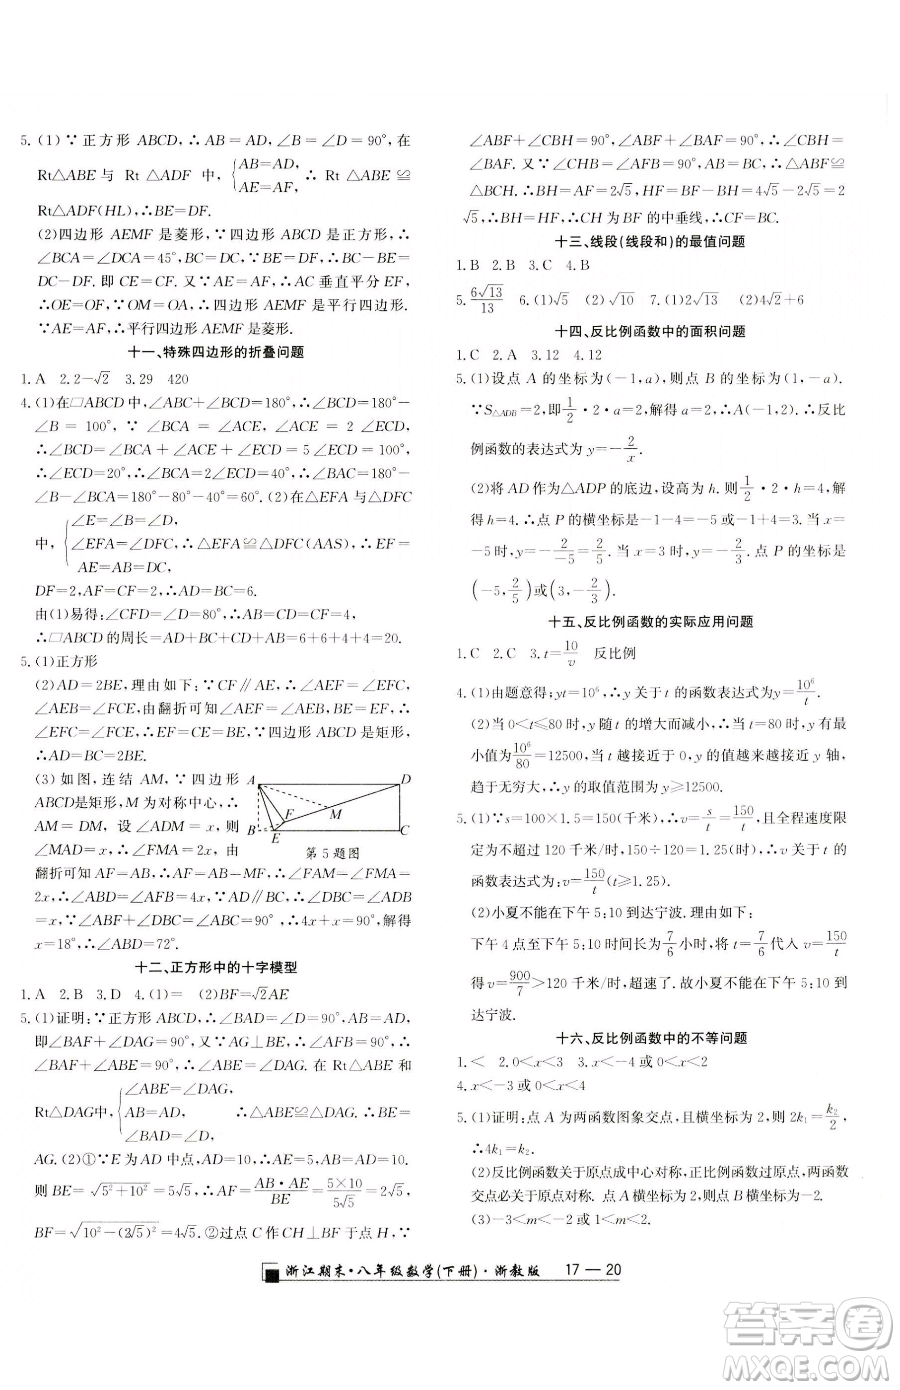 5. (1) ∵ 正方形 ABCD, ∴ AB = AD, ∠B = ∠D = 90°, 在
Rt△ABE 与 Rt △ADF 中, {AB=AD, AE=AF, ∴ Rt △ABE ≌
Rt△ADF(HL), ∴BE=DF.
(2)四边形 AEMF 是菱形. ∵四边形 ABCD 是正方形, ∴
∠BCA = ∠DCA = 45°, BC = DC. ∵ BE = DF, ∴ BC - BE =
DC-DF. 即 CE = CF. 又∵ AE = AF, ∴ AC 垂直平分 EF,
∴OE=OF, 又∵OM=OA, ∴四边形 AEMF 是平行四边形.
∵AE=AF, ∴平行四边形 AEMF 是菱形.
十一、特殊四边形的折叠问题
1. A 2. 2-√2 3. 29 420
4. (1)在□ABCD 中, ∠ABC+∠BCD=180°, ∴∠BCD=180°-
∠B = 100°, ∵ ∠BCA = ∠ACE, ∴ ∠ACE = 2 ∠ECD,
∴∠BCD = ∠BCA + ∠ACE + ∠ECD = 5 ∠ECD = 100°,
∴∠ECD=20°, ∴∠BCA=2∠ECD=40°, ∴∠BAC=180°-
∠B-∠BCA=180°-80°-40°=60°. (2)在△EFA 与△DFC
中, {∠E=∠B=∠D, ∠EFA=∠DFC, AE=AB=DC, ∴△EFA≌△DFC(AAS), ∴EF=
DF=2, AF=CF, ∴AD=BC=6.
由(1)易得: ∠CFD=∠D=80°, ∴AB=CD=CF=4,
∴□ABCD 的周长=AD+BC+CD+AB=6+6+4+4=20.
5. (1)正方形
(2)AD=2BE, 理由如下: ∵CF∥AE, ∴∠AEF=∠CFE,
∠AEB=∠FCE, 由翻折可知 ∠AEF=∠AEB, BE=EF,
∴∠CFE=∠FCE, ∴EF=CE, ∵四边形 ABCD 是矩形,
∴AD=BC=2BE.
(3) 如图, 连结 AM, ∵ 四边形
ABCD是矩形, M 为对称中心, ∴
AM = DM, 设 ∠ADM = x, 则
∠MAD = x, ∴∠FMA = 2x, 由
A D B C E F M
第 5 题图
翻折可知 AF=AB, ∴AF=AB=MF, ∴∠FAM=∠FMA=
2x, ∴∠BAF=∠DBA=∠AFB=4x, ∵AD∥BC, ∴∠DBC=∠ADB
=x, ∵∠ABF+∠DBC=∠ABC=90°, ∴4x+x=90°, 解得
x=18°, ∴∠ABD=72°.
十二、正方形中的十字模型
1. A 2. B 3. D 4. (1)= (2)BF=√2AE
5. (1)证明: ∵正方形 ABCD, ∴∠BAD=∠D=90°, AB=AD,
即∠BAF+∠DAG=90°, 又∵AG⊥BE, ∴∠AFB=90°,
∴∠BAF+∠ABE=90°, ∴∠ABE=∠DAG. 在 Rt△ABE 和
Rt△DAG中, {∠ABE=∠DAG, AB=AD, ∠BAD=∠D, ∴ △ABE≌△DAG, ∴BE=
AG. (2)①∵E 为 AD 中点, ∴AE=5.
则 BE=√(5²+10²)=5√5, ∴AF=AB·AE/BE=5×10/5√5=2√5,
BF=√(10²-(2√5)²)=4√5. ②过点 C 作 CH⊥BF 于点 H, ∵
∠ABF + ∠CBH = 90°, ∠ABF + ∠BAF = 90°, ∴ ∠CBH =
∠BAF. 又∵ ∠CHB = ∠AFB = 90°, AB = BC, ∴ △ABF≌
△BCH. ∴ BH = AF = 2√5, HF = BF - BH = 4√5 - 2√5 = 2
√5, ∴BH=HF, ∴CH为 BF 的中垂线, ∴CF=BC.
十三、线段(线段和)的最值问题
1. B 2. B 3. C 4. B
5. 6√13/13 6. (1)√5 (2)√10 7. (1)2√13 (2)4√2+6
十四、反比例函数中的面积问题
1. C 2. A 3. 12 4. 12
5. (1)设点 A 的坐标为(-1,a), 则点 B 的坐标为(1,-a).
∵S△ADB=2, 即 1/2·2·a=2, 解得 a=2, ∴A(-1,2). ∴反比
例函数的表达式为 y=-2/x.
(2)将 AD 作为△ADP 的底边, 设高为 h. 则 1/2·2·h=4, 解
得 h=4. ∴点 P 的横坐标是-1-4=-5 或-1+4=3. 当 x=
-5时, y=-2/-5=2/5. 当 x=3 时, y=-2/3. 点 P 的坐标是
(-5, 2/5)或(3, -2/3).
十五、反比例函数的实际应用问题
1. C 2. C 3. t=10/v 反比例
4. (1)由题意得: yt=10⁶, ∴y 关于 t 的函数表达式为 y=10⁶/t.
(2)当 0<t≤80 时, y 随 t 的增大而减小, ∴当 t=80 时, y 有最
小值为10⁶/80=12500, 当 t 越接近于 0, y 的值越来越接近 y 轴,
趋于无穷大, ∴y 的取值范围为 y≥12500.
5. (1)∵s=100×1.5=150(千米), ∴v=s/t=150/t, 且全程速度限
定为不大于 120 千米/时, ∴t≥150÷120=1.25, ∴v 关于 t 的
函数表达式为: v=150/t(t≥1.25).
(2)小夏不能在下午 5:10 达宁波. 理由如下:
下午 4 点至下午 5:10 时间长为7/6小时, 将 t=7/6代入 v=150/t
得 v=900/7>120 千米/时, 超速了. 故小夏不能在下午 5:10
达宁波.
十六、反比例函数中的不等问题
1. < 2. 0<x<3 3. x<-4 或 0<x<2
4. x<-3 或 0<x<4
5. (1)证明: 点 A 为两函数图象交点, 且横坐标为 2, 则 2k₁=k₂/2,
∴4k₁=k₂.
(2)反比例函数关于原点成中心对称, 正比例函数过原点, 两函数
交点必关于原点对称. 点 A 横坐标为2, 则点 B 横坐标为-2.
(3)-3<m<-2 或 0<m<2.
浙江期末·八年级数学(下册)·浙教版 17—20
答案卷
MXQE.COM